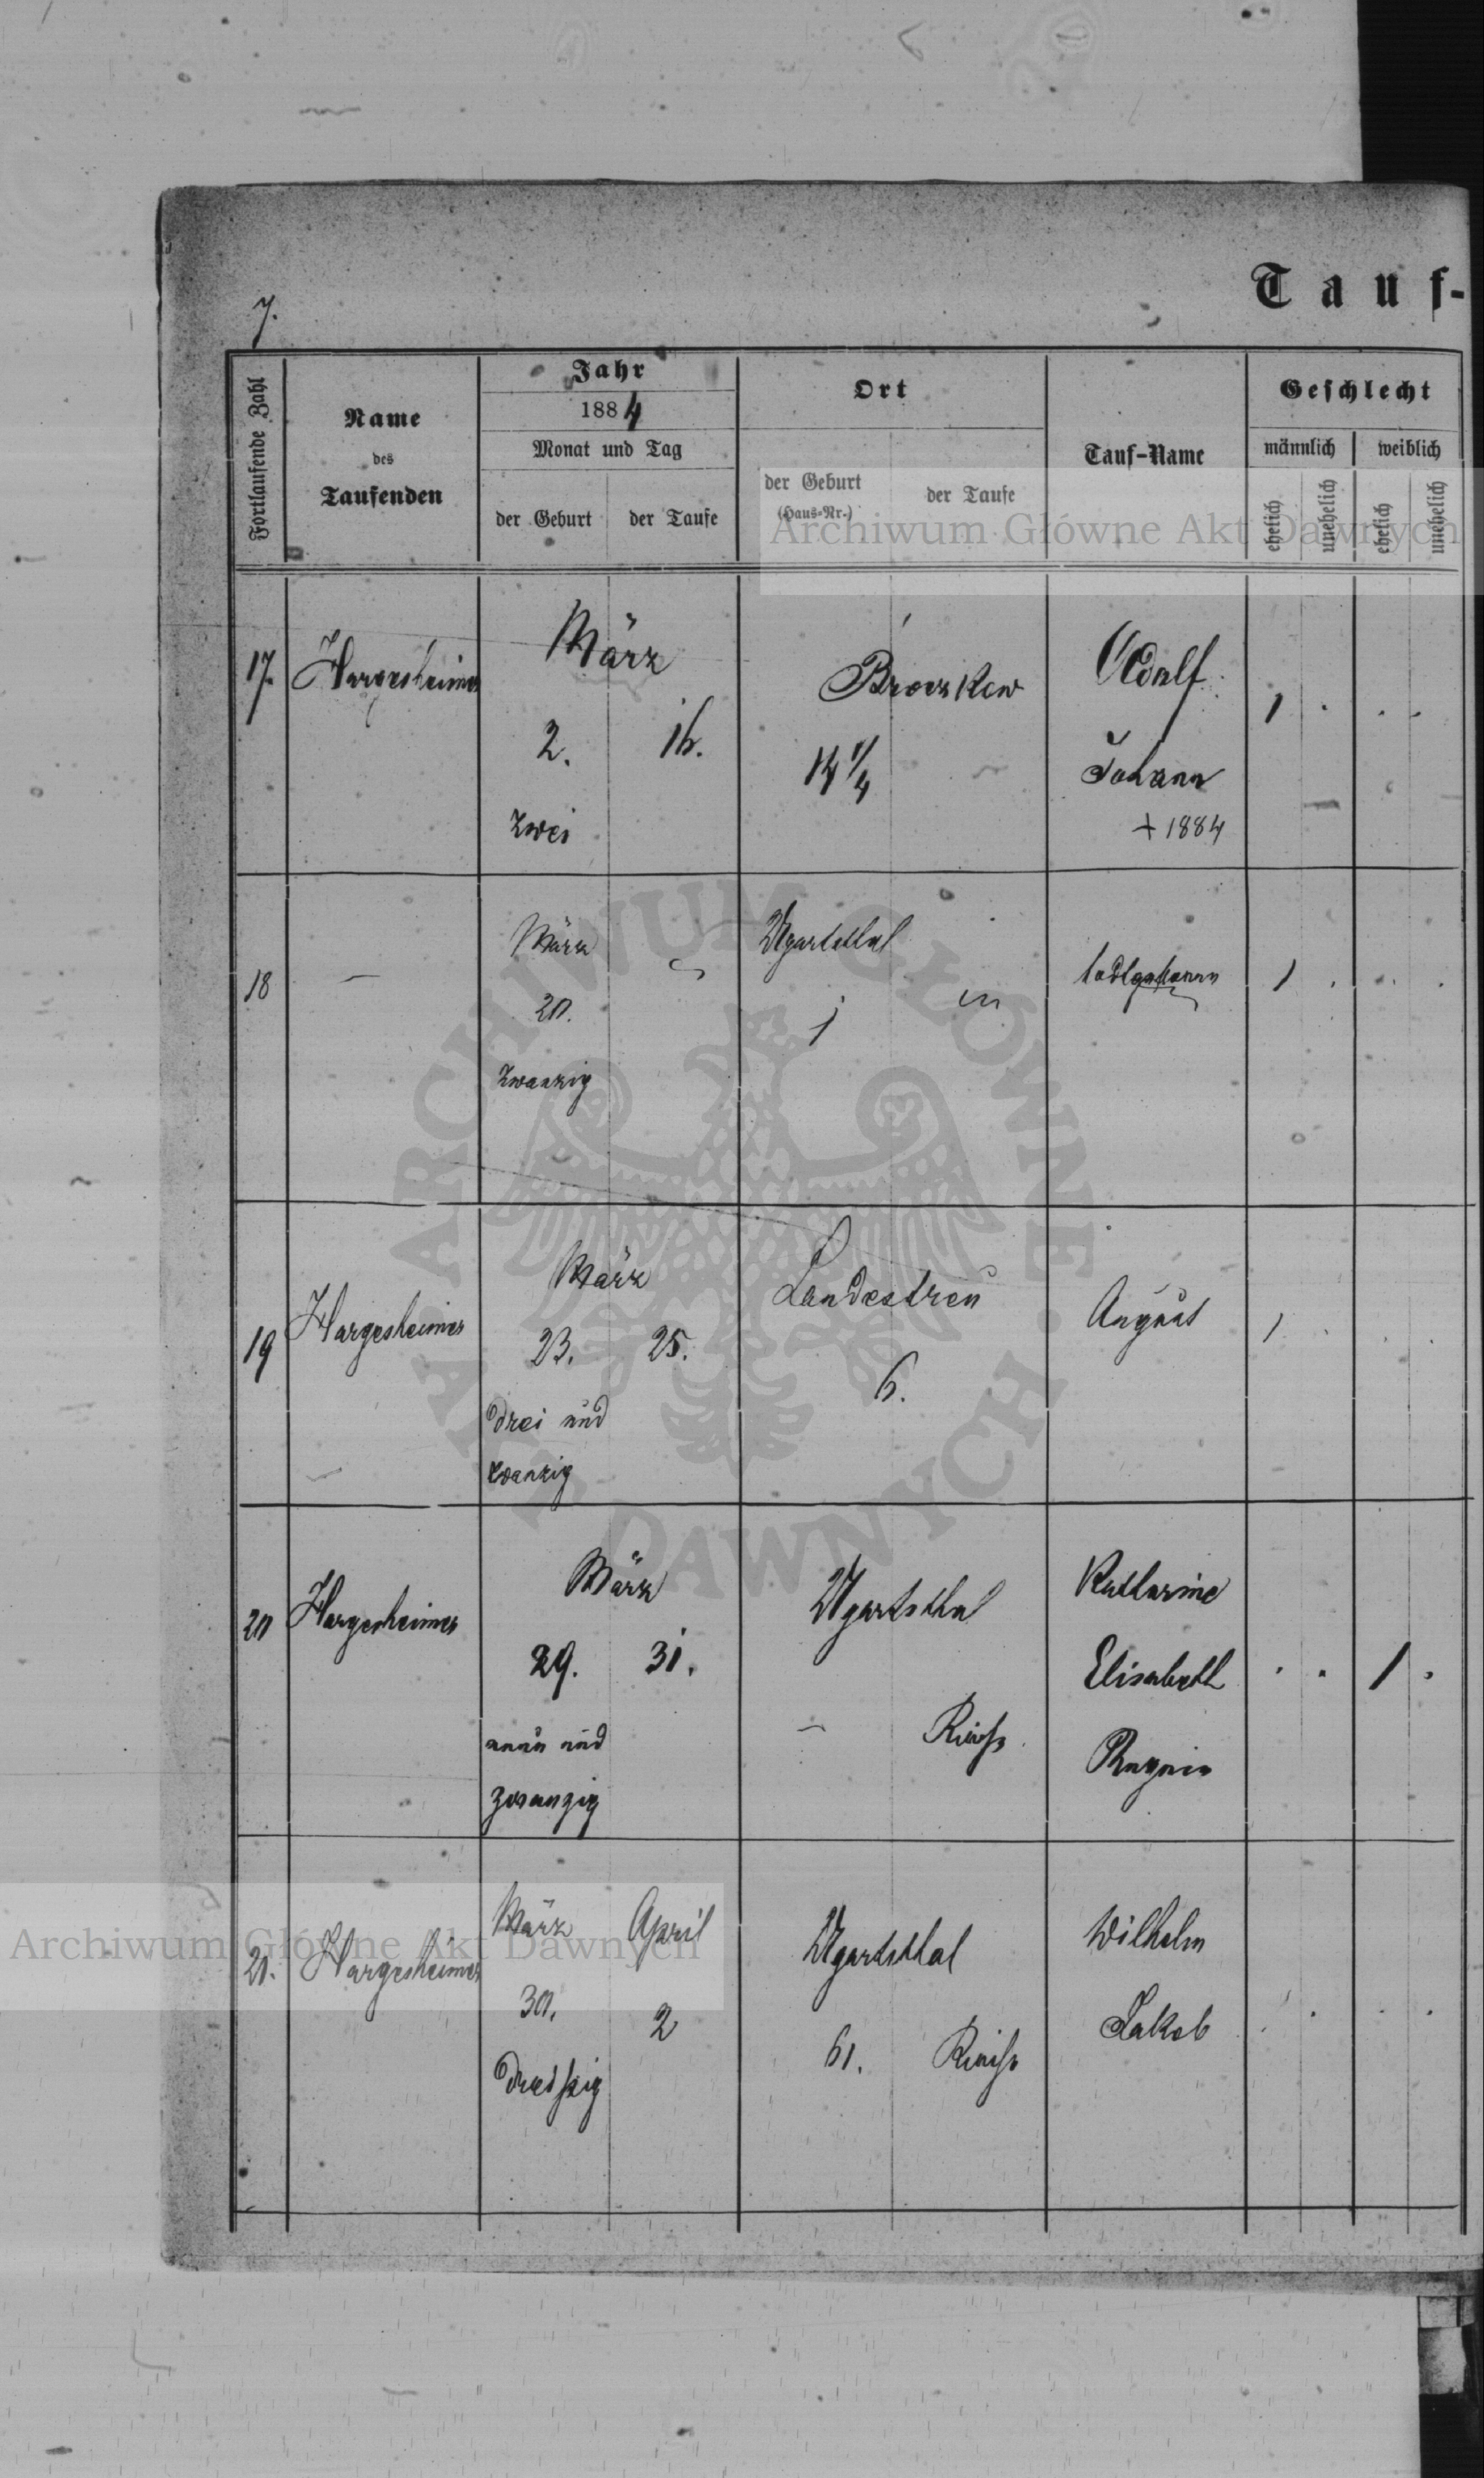 7.
Tauf-
Fortlaufende Zahl
Name
des
Taufenden
Jahr
1884
Monat und Tag
der Geburt
der Taufe
Ort
der Geburt
(Haus-Nr.)
der Taufe
Tauf-Name
Geschlecht
männlich
weiblich
ehelich
unehelich
ehelich
unehelich
Archiwum Główne Akt Dawnych
17.
Hargesheimer
März
2.
16.
zwei
Broczkow
14 1/4
Adolf
Johann
+ 1884
1 . . .
18
—
März
20.
zwanzig
Ugartsthal
1
todtgeboren
1 . . .
19
Hargesheimer
März
23.
25.
drei und
zwanzig
Landestreu
6.
August
1 . . .
20
Hargesheimer
März
29.
31.
neun und
zwanzig
Ugartsthal
—
Katharine
Elisabeth
. . 1 .
21.
Hargesheimer
März
April
30.
2
dreißig
Ugartsthal
61.
Wilhelm
Jakob
Archiwum Główne Akt Dawnych
ARCHIWUM GŁÓWNE · AKT DAWNYCH ·